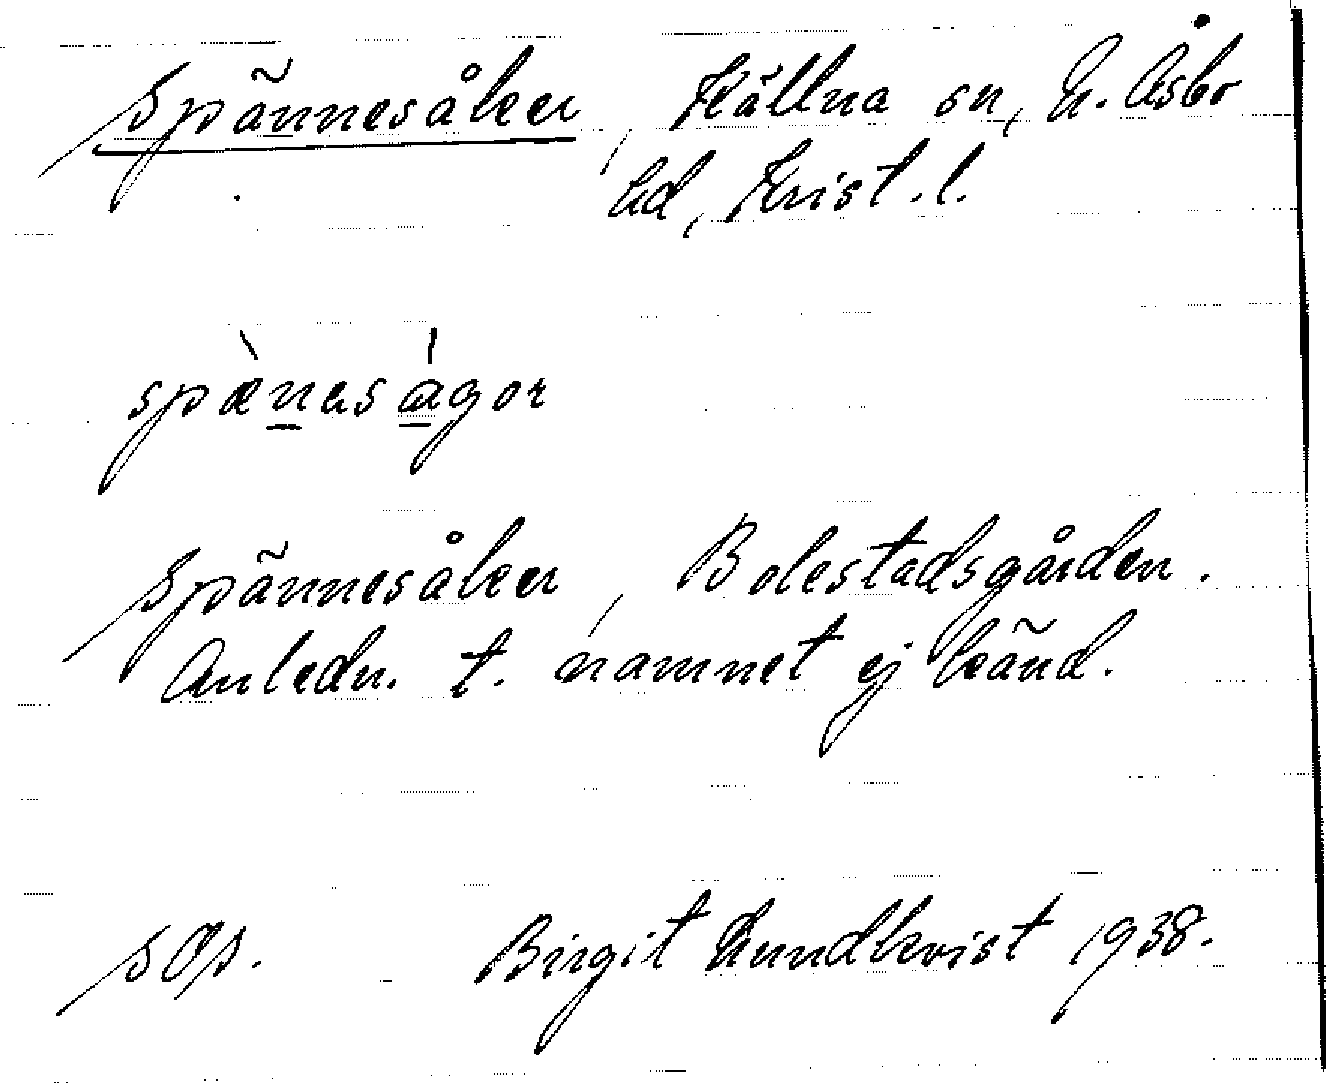 Spännesåker, Källna sn, N. Åsbo
hd, Krist. l.
spæ̀nəságor
Spännesåker, Bolestadsgården.
Anledn. t. namnet ej känd.
Birgit Lundkvist 1938.